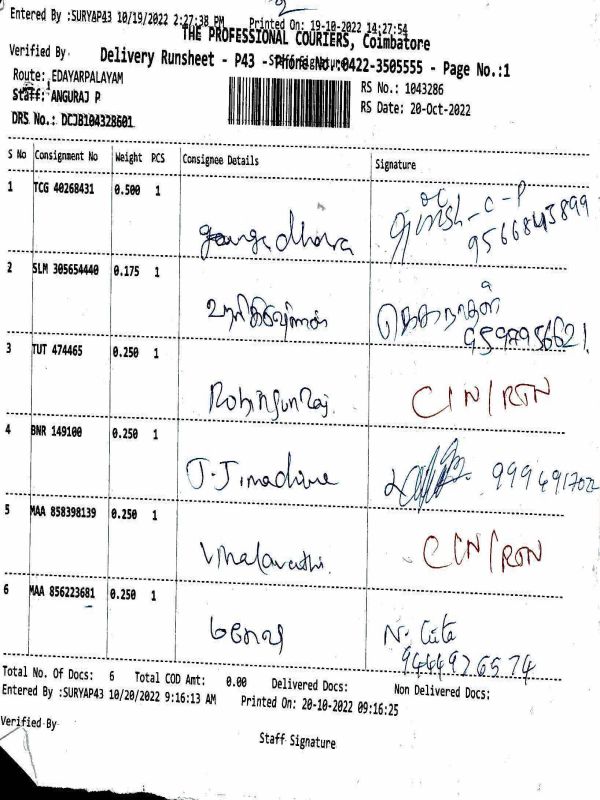 Entered By :SURYAP43 10/19/2022 2:27:38 PM Printed On: 19-10-2022 14:27:54
THE PROFESSIONAL COURIERS, Coimbatore
Verified By
Delivery Runsheet - P43 - Phone No.:0422-3505555 - Page No.:1
Route: EDAYARPALAYAM
RS No.: 1043286
Staff: ANGURAJ P
RS Date: 20-Oct-2022
DRS No.: DCJB104328601
S No Consignment No Weight PCS Consignee Details Signature
1 TCG 40268431 0.500 1
9566843899
2 SLM 305654440 0.175 1
3 TUT 474465 0.250 1
Robinson Raj. CIN/RTN
4 BNR 149100 0.250 1
J.J. machine
5 MAA 858398139 0.250 1
CIN/RTN
6 MAA 856223681 0.250 1
9444926574
Total No. Of Docs: 6 Total COD Amt: 0.00 Delivered Docs: Non Delivered Docs:
Entered By :SURYAP43 10/20/2022 9:16:13 AM Printed On: 20-10-2022 09:16:25
Verified By
Staff Signature